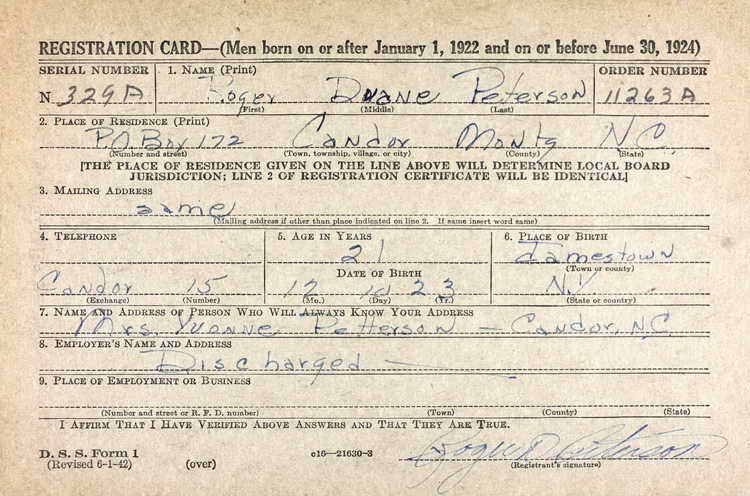 REGISTRATION CARD—(Men born on or after January 1, 1922 and on or before June 30, 1924)
SERIAL NUMBER 1. NAME (Print) ORDER NUMBER
N 329A Roger Duane Peterson 11263A
(First) (Middle) (Last)
2. PLACE OF RESIDENCE (Print)
P.O. Box 172 Candor Montg N.C.
(Number and street) (Town, township, village, or city) (County) (State)
[THE PLACE OF RESIDENCE GIVEN ON THE LINE ABOVE WILL DETERMINE LOCAL BOARD
JURISDICTION; LINE 2 OF REGISTRATION CERTIFICATE WILL BE IDENTICAL]
3. MAILING ADDRESS
same
(Mailing address if other than place indicated on line 2. If same insert word same)
4. TELEPHONE 5. AGE IN YEARS 6. PLACE OF BIRTH
21 Jamestown
(Town or county)
DATE OF BIRTH
Candor 15 12 10 23 N.Y.
(Exchange) (Number) (Mo.) (Day) (Yr.) (State or country)
7. NAME AND ADDRESS OF PERSON WHO WILL ALWAYS KNOW YOUR ADDRESS
Mrs. Yvonne Petterson — Candor, N.C.
8. EMPLOYER'S NAME AND ADDRESS
Discharged —
9. PLACE OF EMPLOYMENT OR BUSINESS
(Number and street or R. F. D. number) (Town) (County) (State)
I AFFIRM THAT I HAVE VERIFIED ABOVE ANSWERS AND THAT THEY ARE TRUE.
D. S. S. Form 1
(Revised 6-1-42) (over) c16—21630-3 Roger D Peterson
(Registrant's signature)